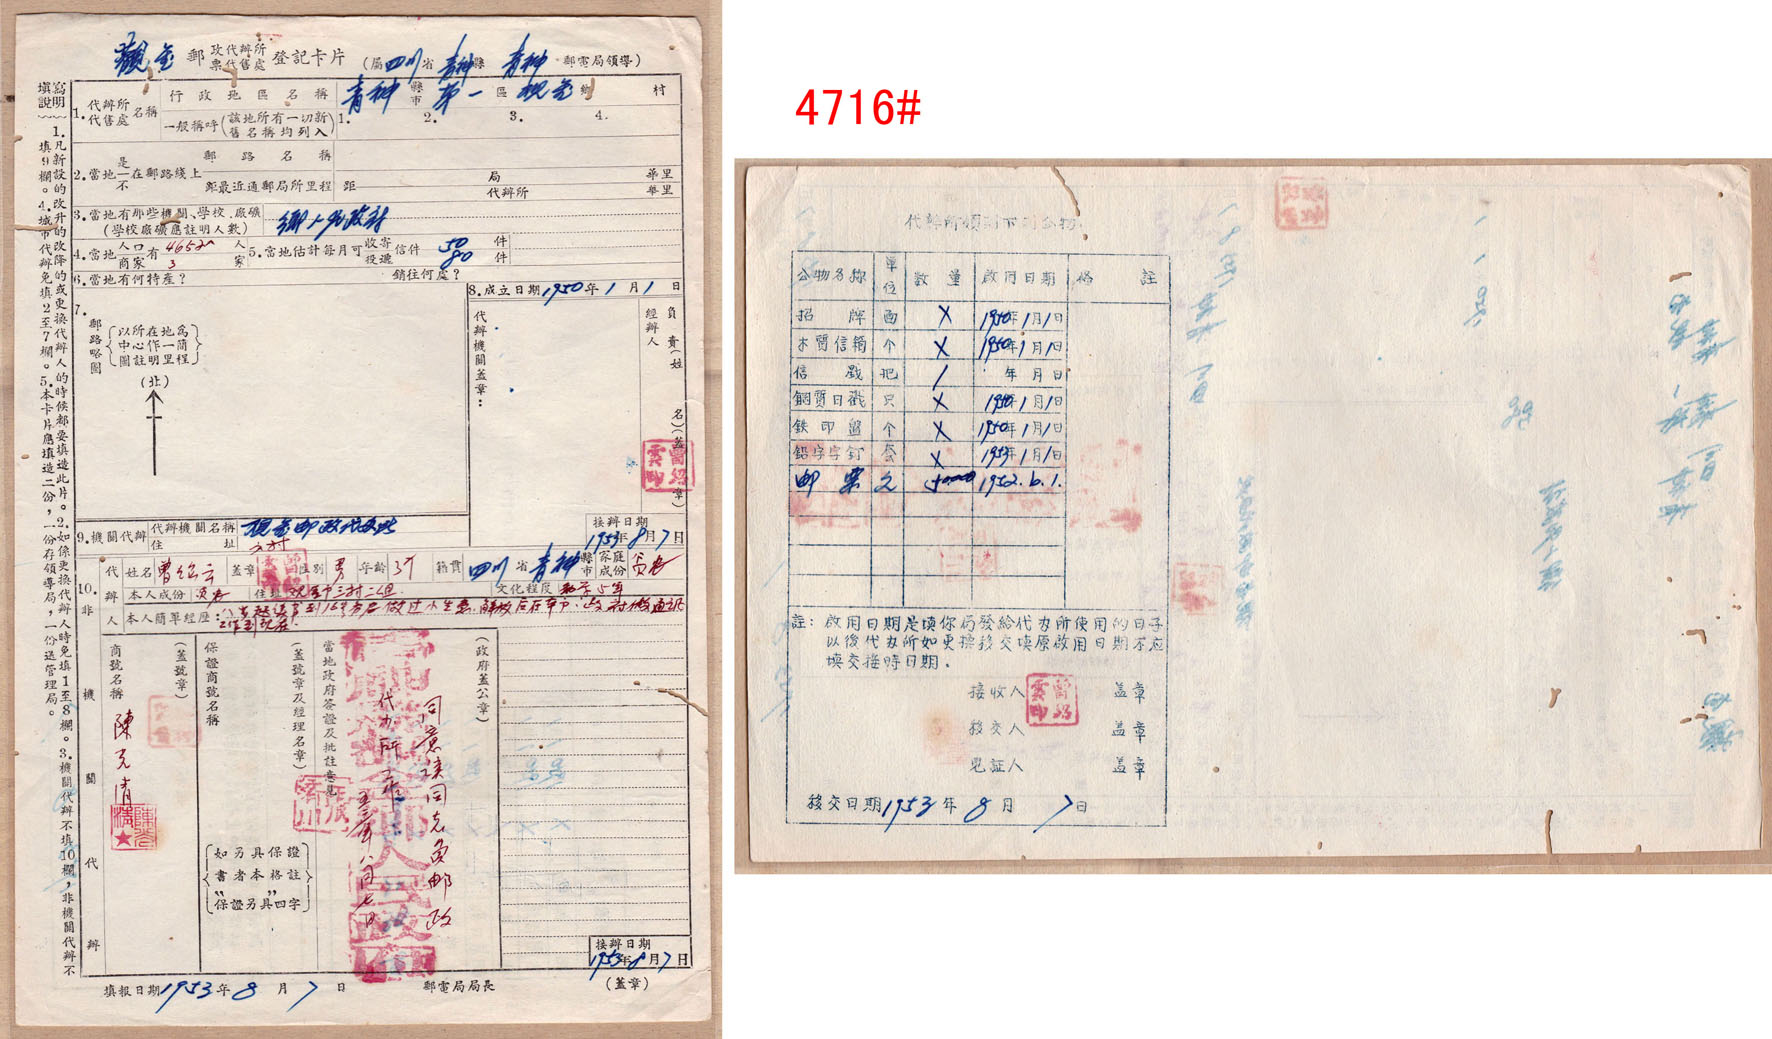 觀金 郵政代辦所 票代售處 登記卡片 (屬四川省青神縣 青神 郵電局領導)
填寫說明
1.凡新設的改升的改降的或更換代辦人的時候都要填造此片。2.如係更換代辦人時免填1至8欄。3.機關代辦不填10欄,非機關代辦不填9欄。4.城市代辦免填2至7欄。5.本卡片應填造二份,一份存領導局,一份送管理局。
1.代辦所代售處名稱
行政地區名稱 青神縣市 第一區 觀金鄉 村
一般稱呼(該地所有一切新舊名稱均列入) 1. 2. 3. 4.
2.當地是不一在郵路綫上
郵路名稱
距最近通郵局所里程 距 局 華里
代辦所 華里
3.當地有那些機關、學校、廠礦
(學校廠礦應註明人數)
4.當地人口商家有 4652人 3家
5.當地估計每月可收寄投遞信件 50件 80件
6.當地有何特產? 銷往何處?
7.郵路略圖
(以所在地為中心作一簡圖註明里程)
(北)
8.成立日期1950年1月1日
代辦機關蓋章:
經辦人
負責(姓名)(蓋章)
曾紹雲印
9.機關代辦 代辦機關名稱 觀金郵政代办所
住址
接辦日期
1953年8月7日
10.非機關代辦
代辦人
姓名 曾紹云 蓋章 性別 男 年齡 37 籍貫 四川省青神縣市 家庭成份 貧农
本人成份 貧农 住址 文化程度
本人簡單經歷:
商號名稱(蓋號章)
陳克清
保證商號名稱(蓋號章及經理名章)
如另具保證書者本格註“保證另具”四字
當地政府簽證及批註意見(政府蓋公章)
代办所工作
五三年八月七日
接辦日期
1953年8月7日
填報日期1953年8月7日 郵電局局長 (蓋章)
4716#
代辦所領到下列公物
公物名称 單位 數量 啟用日期 俻註
招牌 面 X 1950年1月1日
木質信箱 个 X 1950年1月1日
信戳 把 / 年月日
鋼質日戳 只 X 1950年1月1日
鉄印盤 个 X 1950年1月1日
鉛字字釘 套 X 1953年1月1日
邮票 元 50000 1952.6.1.
註:啟用日期是填你局發給代办所使用的日子
以後代办所如更換移交填原啟用日期不应
填交接時日期.
接收人 曾紹雲印 盖章
移交人 盖章
見証人 盖章
移交日期1953年8月7日